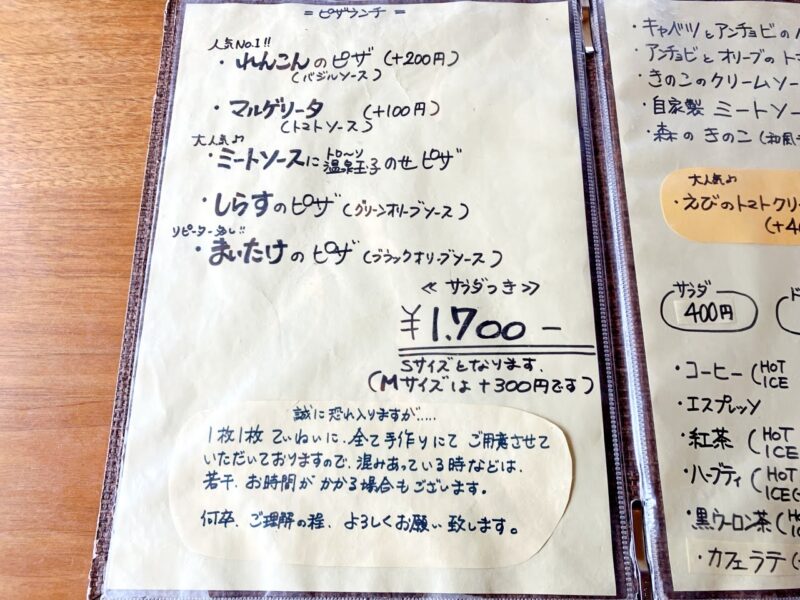 = ピザランチ =
人気No.1!!
・れんこんのピザ (+200円)
(バジルソース)
・マルゲリータ (+100円)
(トマトソース)
大人気♪
・ミートソースにトロ〜リ温泉玉子のせピザ
・しらすのピザ (グリーンオリーブソース)
リピーター多し!!
・まいたけのピザ (ブラックオリーブソース)
≪ サラダつき ≫
¥1.700−
Sサイズとなります.
(Mサイズは+300円です)
誠に恐れ入りますが.....
1枚1枚ていねいに、全て手作りにてご用意させて
いただいておりますので、混みあっている時などは、
若干、お時間がかかる場合もございます。
何卒、ご理解の程、よろしくお願い致します。
・キャベツとアンチョビの
・アンチョビとオリーブのトマ
・きのこのクリームソー
・自家製 ミートソー
・森のきのこ (和風
大人気♪
・えびのトマトクリー
(+4
サラダ
400円
・コーヒー (HOT
ICE
・エスプレッソ
・紅茶 (HOT
ICE
・ハーブティ (HOT
ICE
・黒ウーロン茶 (HO
IC
・カフェラテ (